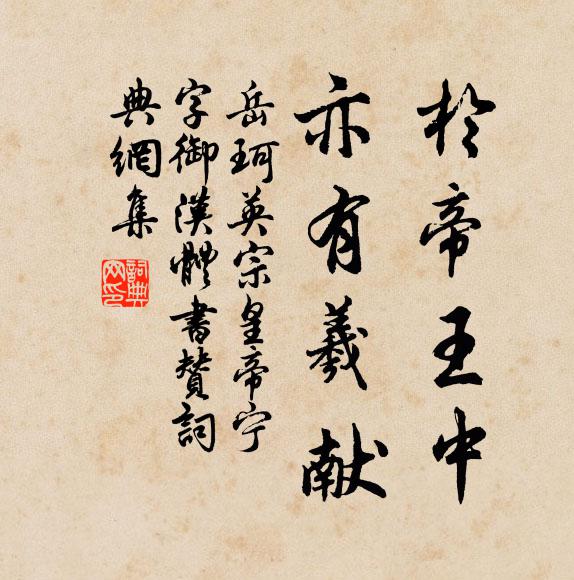 於帝王中
亦有羲献
岳珂英宗皇帝宁
字御漢體書賛詞
典網集
詞典
网印